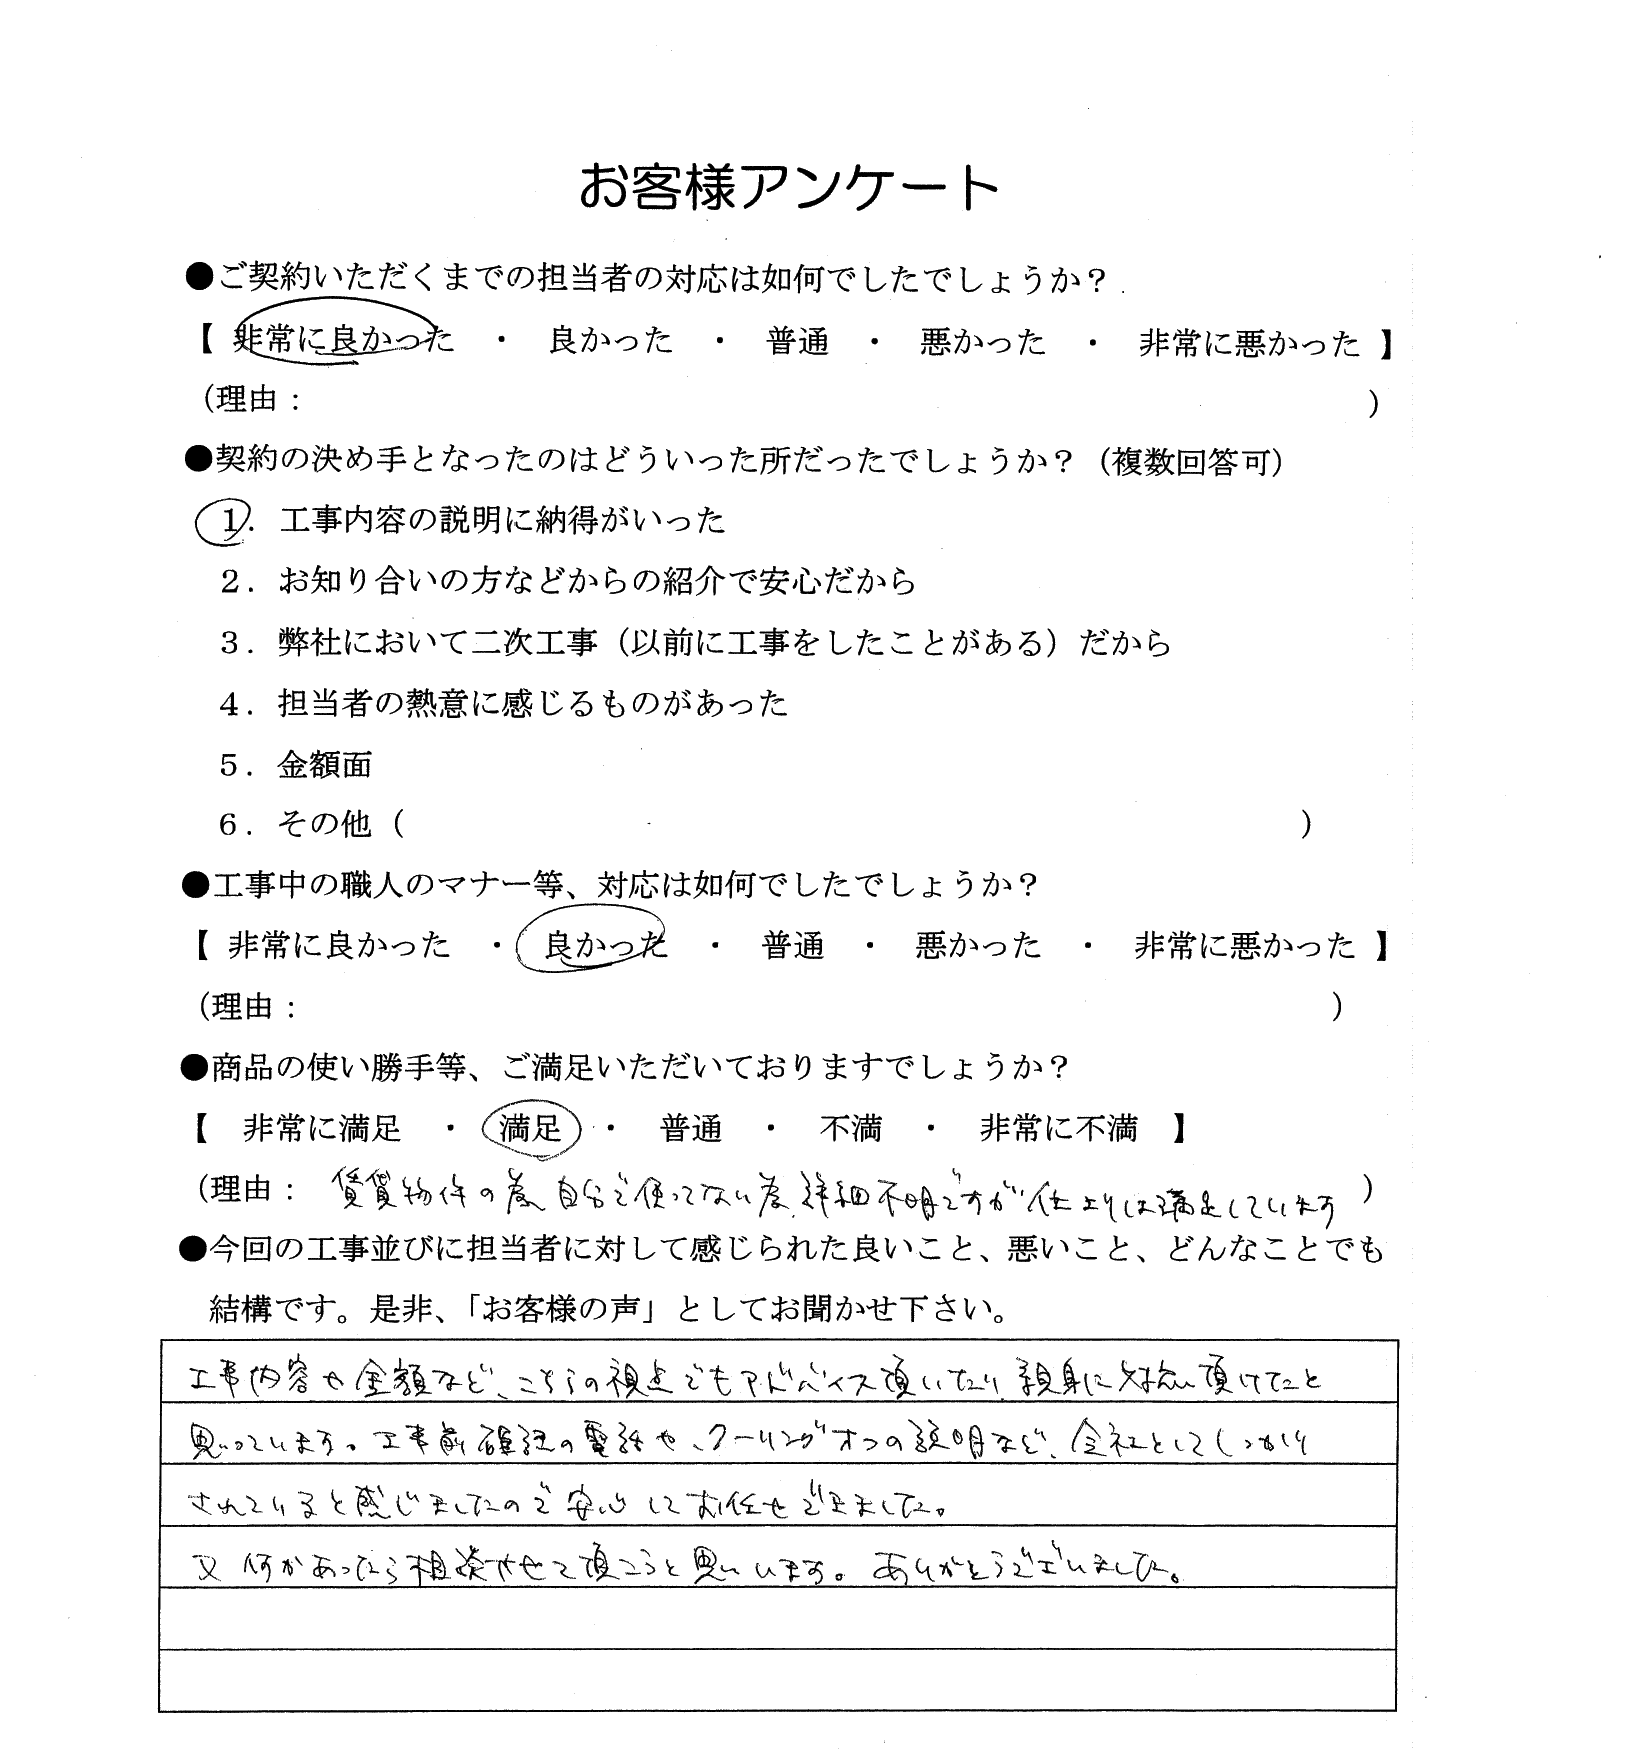 お客様アンケート
●ご契約いただくまでの担当者の対応は如何でしたでしょうか？
【 非常に良かった ・ 良かった ・ 普通 ・ 悪かった ・ 非常に悪かった 】
（理由： ）
●契約の決め手となったのはどういった所だったでしょうか？（複数回答可）
１．工事内容の説明に納得がいった
２．お知り合いの方などからの紹介で安心だから
３．弊社において二次工事（以前に工事をしたことがある）だから
４．担当者の熱意に感じるものがあった
５．金額面
６．その他（ ）
●工事中の職人のマナー等、対応は如何でしたでしょうか？
【 非常に良かった ・ 良かった ・ 普通 ・ 悪かった ・ 非常に悪かった 】
（理由： ）
●商品の使い勝手等、ご満足いただいておりますでしょうか？
【 非常に満足 ・ 満足 ・ 普通 ・ 不満 ・ 非常に不満 】
（理由： 賃貸物件の為、自分で使ってない為、詳細不明ですが仕上りは満足しています ）
●今回の工事並びに担当者に対して感じられた良いこと、悪いこと、どんなことでも
結構です。是非、「お客様の声」としてお聞かせ下さい。
工事内容や金額など、こちらの視点でもアドバイス頂いたり、親身に対応頂けたと
思っています。工事前確認の電話や、クーリングオフの説明など、会社としてしっかり
されていると感じましたので安心してお任せできました。
又何かあったら相談させて頂こうと思います。ありがとうございました。